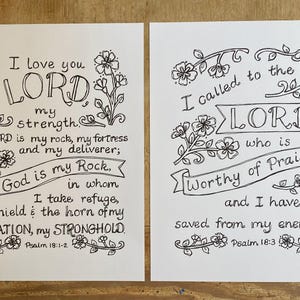 I love you
LORD
my
strength.
RD is my rock, my fortress
and my deliverer;
God is my Rock,
in whom
I take refuge,
hield & the horn of my
ATION, my STRONGHOLD.
Psalm 18:1-2
I called to the
LOR
who is
Worthy of Prai
and I have
saved from my ene
Psalm 18:3